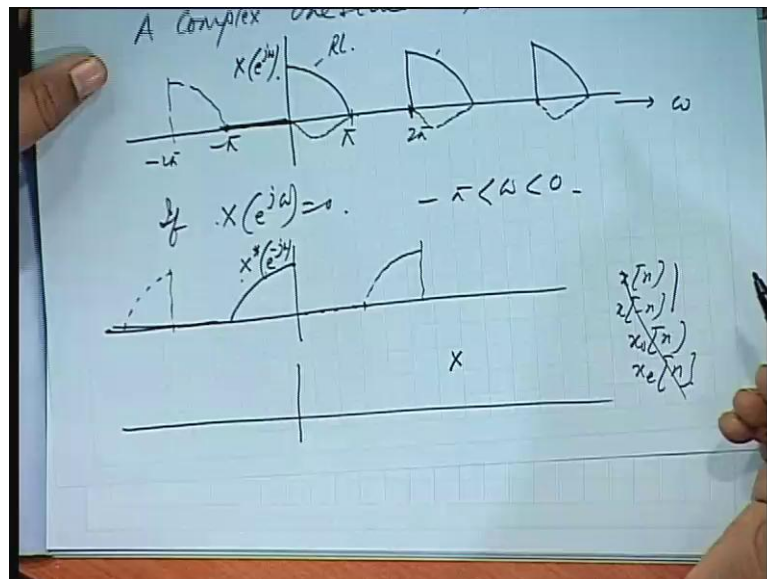 A complex onesided
X(e^{jω}) RL.
-2π -π π 2π → ω
If X(e^{jω})=0. -π<ω<0-
X*(e^{-jω})
x[n]
x[-n]
x_o[n]
x_e[n]
X